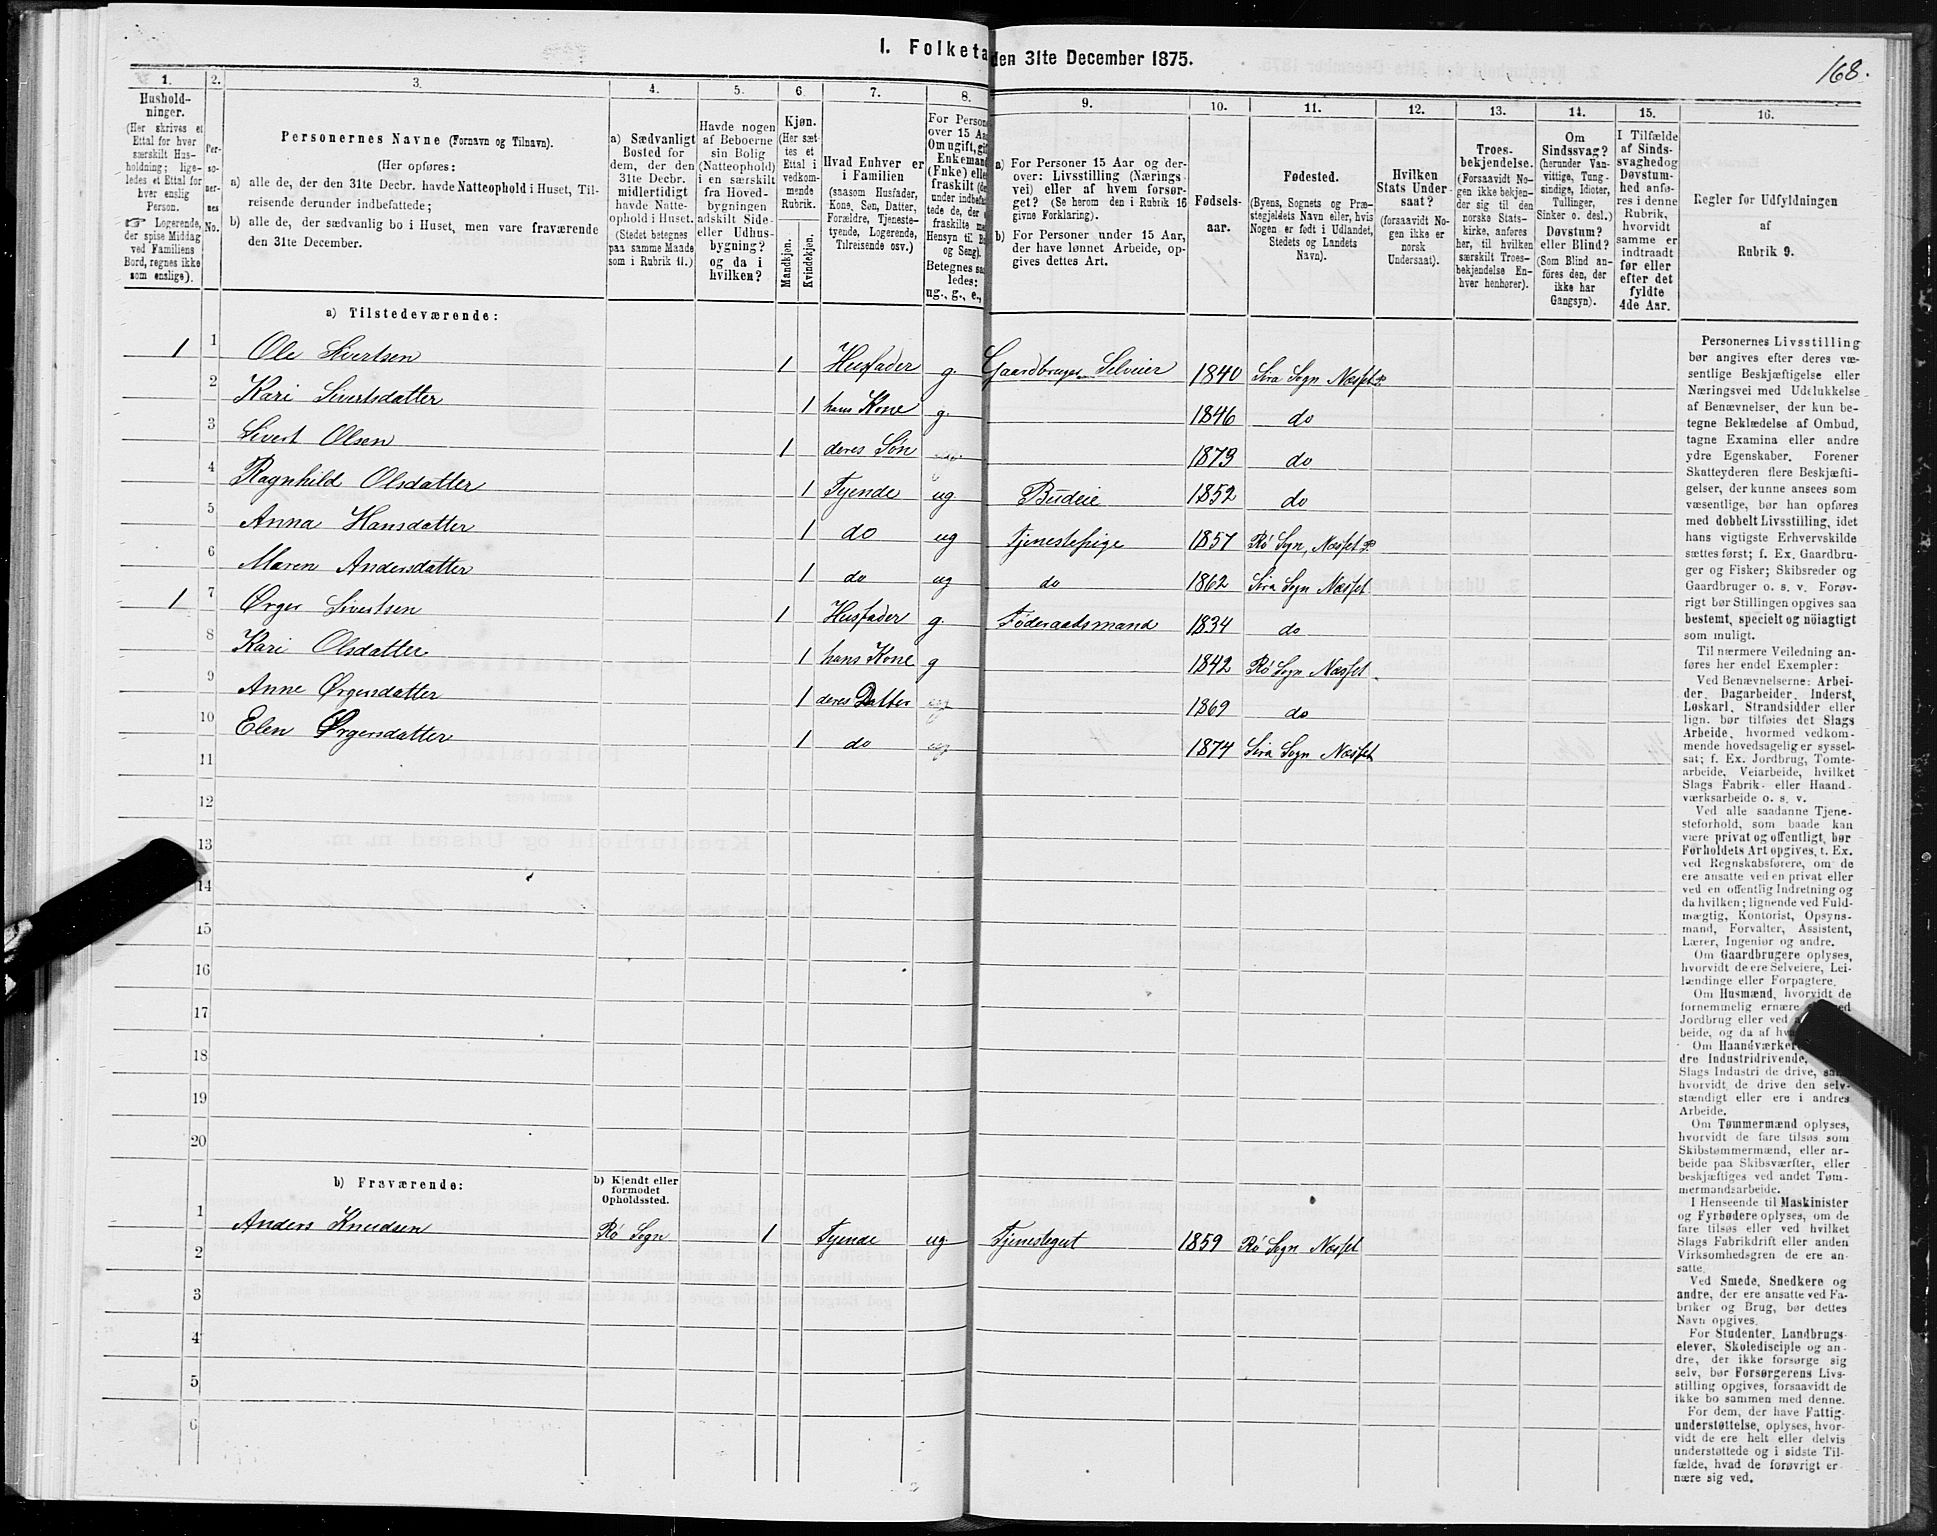 168.
I. Folketa den 31te December 1875.
1. 2. 3. 4. 5. 6. 7. 8. 9. 10. 11. 12. 13. 14. 15. 16.
Hushold-
ninger.
(Her skrives et
Ettal for hver
særskilt Hus-
holdning; lige-
ledes et Ettal for
hver enslig
Person.
☞ Logerende,
der spise Middag
ved Familiens
Bord, regnes ikke
som enslige).
Per-
so-
ner-
nes
No.
Personernes Navne (Fornavn og Tilnavn).
(Her opføres:
a) alle de, der den 31te Decbr. havde Natteophold i Huset, Til-
reisende derunder indbefattede;
b) alle de, der sædvanlig bo i Huset, men vare fraværende
den 31te December.
a) Sædvanligt
Bosted for
dem, der den
31te Decbr.
midlertidigt
havde Natte-
ophold i Huset.
(Stedet betegnes
paa samme Maade
som i Rubrik 11.)
Havde nogen
af Beboerne
sin Bolig
(Natteophold)
i en særskilt
fra Hoved-
bygningen
adskilt Side-
eller Udhus-
bygning?
og da i
hvilken?
Kjøn.
(Her sæt-
tes et
Ettal i
vedkom-
mende
Rubrik.
Mandkjøn.
Kvindekjøn.
Hvad Enhver er
i Familien
(saasom Husfader,
Kone, Søn, Datter,
Forældre, Tjeneste-
tyende, Logerende,
Tilreisende osv.)
For Persone
over 15 Aa
Om ugift, gif
Enkemand
(Enke) elle
fraskilt (de
under indbefat
tede de, der e
fraskilte me
Hensyn til B
og Seng).
Betegnes saa
ledes:
ug., g., e.,
a) For Personer 15 Aar og der-
over: Livsstilling (Nærings-
vei) eller af hvem forsør-
get? (Se herom den i Rubrik 16
givne Forklaring).
b) For Personer under 15 Aar,
der have lønnet Arbeide, op-
gives dettes Art.
Fødsels-
aar.
Fødested.
(Byens, Sognets og Præ-
stegjeldets Navn eller, hvis
Nogen er født i Udlandet,
Stedets og Landets
Navn).
Hvilken
Stats Under-
saat?
(forsaavidt No-
gen ikke er
norsk
Undersaat).
Troes-
bekjendelse.
(Forsaavidt No-
gen ikke bekjen-
der sig til den
norske Stats-
kirke, anføres
her, til hvilken
særskilt Troes-
bekjendelse En-
hver henhører).
Om
Sindssvag?
(herunder Van-
vittige, Tung-
sindige, Idioter,
Tullinger,
Sinker o. desl.)
Døvstum?
eller Blind?
(Som Blind an-
føres den, der
ikke har
Gangsyn).
I Tilfælde
af Sinds-
svaghed og
Døvstum-
hed anfø-
res i denne
Rubrik,
hvorvidt
samme er
indtraadt
før eller
efter det
fyldte
4de Aar.
Regler før Udfyldningen
af
Rubrik 9.
a) Tilstedeværende:
1 1 Ole Sivertsen 1 Husfader g. Gaardbruger Selveier 1840 Sira Sogn Næsset P.
2 Kari Sivertsdatter 1 hans Kone g. 1846 do
3 Sivert Olsen 1 deres Søn 1879 do
4 Ragnhild Olsdatter 1 Tyende ug Budeie 1852 do
5 Anna Hansdatter 1 do ug Tjenestepige 1857 Rø Sogn, Næsset P
6 Maren Andersdatter 1 do ug do 1862 Sira Sogn Næsset
1 7 Ørger Sivertsen 1 Husfader g. Føderaadsmand 1834 do
8 Kari Olsdatter 1 hans Kone g 1842 Rø Sogn Næsset.
9 Anne Ørgersdatter 1 deres Datter ug 1869 do
10 Elen Ørgersdatter 1 do ug 1874 Sira Sogn Næsset
11
12
13
14
15
16
17
18
19
20
b) Fraværende:
b) Kjendt eller
formodet
Opholdssted.
1 Anders Knudsen Rø Sogn 1 Tyende ug Tjenestegut 1859 Rø Sogn Næsset
2
3
4
5
6
Personernes Livsstilling
bør angives efter deres væ-
sentlige Beskjæftigelse eller
Næringsvei med Udelukkelse
af Benævnelser, der kun be-
tegne Beklædelse af Ombud,
tagne Examina eller andre
ydre Egenskaber. Forener
Skatteyderen flere Beskjæfti-
gelser, der kunne ansees som
væsentlige, bør han opføres
med dobbelt Livsstilling, idet
hans vigtigste Erhvervskilde
sættes først; f. Ex. Gaardbru-
ger og Fisker; Skibsreder og
Gaardbruger o. s. v. Forøv-
rigt bør Stillingen opgives saa
bestemt, specielt og nöiagtigt
som muligt.
Til nærmere Veiledning an-
føres her endel Exempler:
Ved Benævnelserne: Arbei-
der, Dagarbeider, Inderst,
Løskarl, Strandsidder eller
lign. bør tilføies det Slags
Arbeide, hvormed vedkom-
mende hovedsagelig er syssel-
sat; f. Ex. Jordbrug, Tomte-
arbeide, Veiarbeide, hvilket
Slags Fabrik- eller Haand-
værksarbeide o. s. v.
Ved alle saadanne Tjene-
steforhold, som baade kan
være privat og offentligt, bør
Forholdets Art opgives, t. Ex.
ved Regnskabsførere, om de
ere ansatte ved en privat eller
ved en offentlig Indretning og
da hvilken; lignende ved Fuld-
mægtig, Kontorist, Opsyns-
mand, Forvalter, Assistent,
Lærer, Ingeniør og andre.
Om Gaardbrugere oplyses,
hvorvidt de ere Selveiere, Lei-
lændinge eller Forpagtere.
Om Husmænd, hvorvidt de
fornemmelig ernære
Jordbrug eller ved
beide, og da af
Om Haandværkere
dre Industridrivende,
Slags Industri de drive,
hvorvidt de drive den selv-
stændigt eller ere i andres
Arbeide.
Om Tømmermænd oplyses,
hvorvidt de fare tilsøs som
Skibstømmermænd, eller ar-
beide paa Skibsværfter, eller
beskjæftiges ved andet Tøm-
mermandsarbeide.
I Henseende til Maskinister
og Fyrbødere oplyses, om de
fare tilsøs eller ved hvilket
Slags Fabrikdrift eller anden
Virksomhedsgren de ere an-
satte.
Ved Smede, Snedkere og
andre, der ere ansatte ved Fa-
briker og Brug, bør dettes
Navn opgives.
For Studenter, Landbrugs-
elever, Skoledisciple og an-
dre, der ikke forsørge sig
selv, bør Forsørgerens Livs-
stilling opgives, forsaavidt de
ikke bo sammen med denne.
For dem, der have Fattig-
understøttelse, oplyses, hvor-
vidt de ere helt eller delvis
understøttede og i sidste Til-
fælde, hvad de forøvrigt er-
nære sig ved.